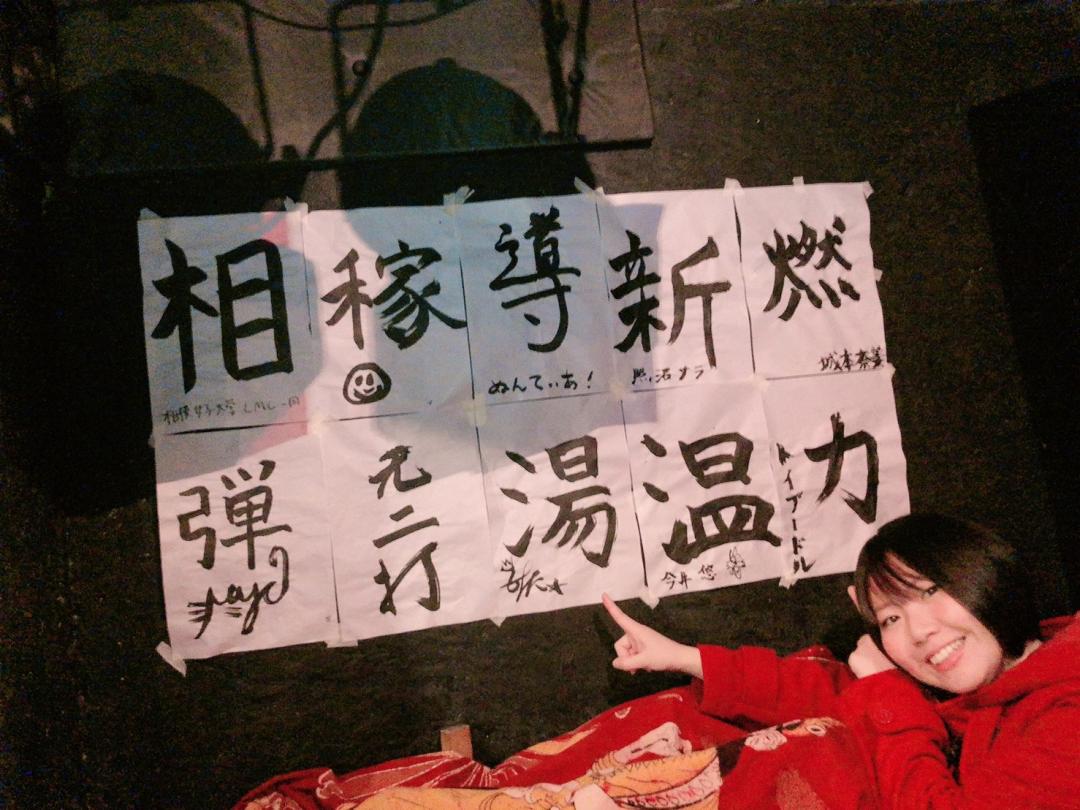 相
相模女子大学 LMC一同
稼
導
ぬんてぃあ!
新
照沼サラ
燃
城本奈菜
弾
元二打
湯
温
今井 悠
力
トイプードル